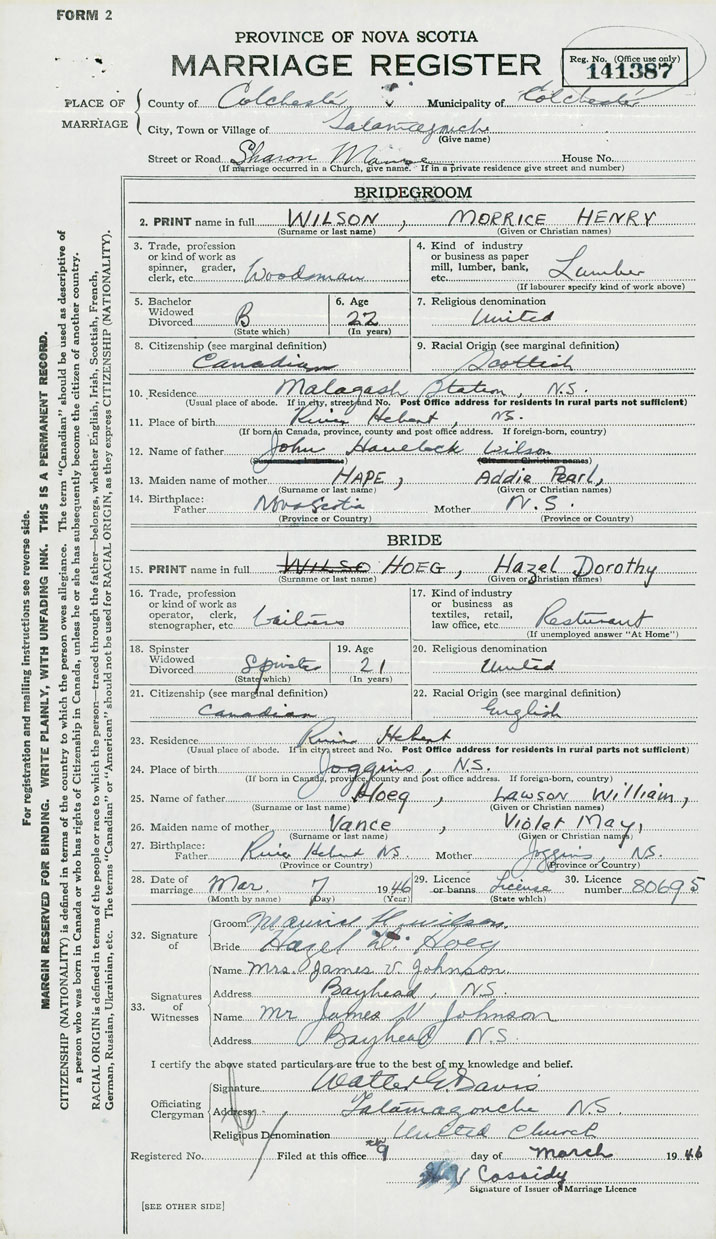 FORM 2
PROVINCE OF NOVA SCOTIA
MARRIAGE REGISTER
Reg. No. (Office use only)
141387
PLACE OF MARRIAGE
County of Colchester Municipality of Colchester
City, Town or Village of Tatamagouche
(Give name)
Street or Road Sharon Manse House No.
(If marriage occurred in a Church, give name. If in a private residence give street and number)
BRIDEGROOM
2. PRINT name in full WILSON, MORRICE HENRY
(Surname or last name) (Given or Christian names)
3. Trade, profession or kind of work as spinner, grader, clerk, etc. Woodsman
4. Kind of industry or business as paper mill, lumber, bank, etc. Lumber
(If labourer specify kind of work above)
5. Bachelor Widowed Divorced B
(State which)
6. Age 22
(In years)
7. Religious denomination United
8. Citizenship (see marginal definition) Canadian
9. Racial Origin (see marginal definition) Scottish
10. Residence Malagash Station, N.S.
(Usual place of abode. If in city, street and No. Post Office address for residents in rural parts not sufficient)
11. Place of birth River Hebert, NS.
(If born in Canada, province, county and post office address. If foreign-born, country)
12. Name of father John Havelock Wilson
(Surname or last name) (Given or Christian names)
13. Maiden name of mother HAPE, Addie Pearl,
(Surname or last name) (Given or Christian names)
14. Birthplace: Father Nova Scotia Mother N.S.
(Province or Country) (Province or Country)
BRIDE
15. PRINT name in full WILSO HOEG, Hazel Dorothy
(Surname or last name) (Given or Christian names)
16. Trade, profession or kind of work as operator, clerk, stenographer, etc.
17. Kind of industry or business as textiles, retail, law office, etc. Resturant
(If unemployed answer "At Home")
18. Spinster Widowed Divorced Spinster
(State which)
19. Age 21
(In years)
20. Religious denomination United
21. Citizenship (see marginal definition) Canadian
22. Racial Origin (see marginal definition) English
23. Residence River Hebert
(Usual place of abode. If in city, street and No. Post Office address for residents in rural parts not sufficient)
24. Place of birth Joggins, N.S.
(If born in Canada, province, county and post office address. If foreign-born, country)
25. Name of father Hoeg, Lawson William,
(Surname or last name) (Given or Christian names)
26. Maiden name of mother Vance, Violet May,
(Surname or last name) (Given or Christian names)
27. Birthplace: Father River Hebert NS. Mother Joggins, NS.
(Province or Country) (Province or Country)
28. Date of marriage Mar. 7 1946
(Month by name) (Day) (Year)
29. Licence or banns License
(State which)
30. Licence number 80695
32. Signature of
Groom Maurice H. Wilson.
Bride Hazel D. Hoeg
33. Signatures of Witnesses
Name Mrs. James V. Johnson.
Address Bayhead, N.S.
Name Mr James V Johnson
Address Bayhead N.S.
I certify the above stated particulars are true to the best of my knowledge and belief.
Officiating Clergyman
Signature Walter G. Davis
Address Tatamagouche N.S.
Religious Denomination United Church
Registered No. Filed at this office 9 day of March 1946
Cassidy
Signature of Issuer of Marriage Licence
[SEE OTHER SIDE]
For registration and mailing instructions see reverse side.
MARGIN RESERVED FOR BINDING. WRITE PLAINLY, WITH UNFADING INK. THIS IS A PERMANENT RECORD.
CITIZENSHIP (NATIONALITY) is defined in terms of the country to which the person owes allegiance. The term "Canadian" should be used as descriptive of
a person who was born in Canada or who has rights of Citizenship in Canada, unless he or she has subsequently become the citizen of another country.
RACIAL ORIGIN is defined in terms of the people or race to which the person—traced through the father—belongs, whether English, Irish, Scottish, French,
German, Russian, Ukrainian, etc. The terms "Canadian" or "American" should not be used for RACIAL ORIGIN, as they express CITIZENSHIP (NATIONALITY).